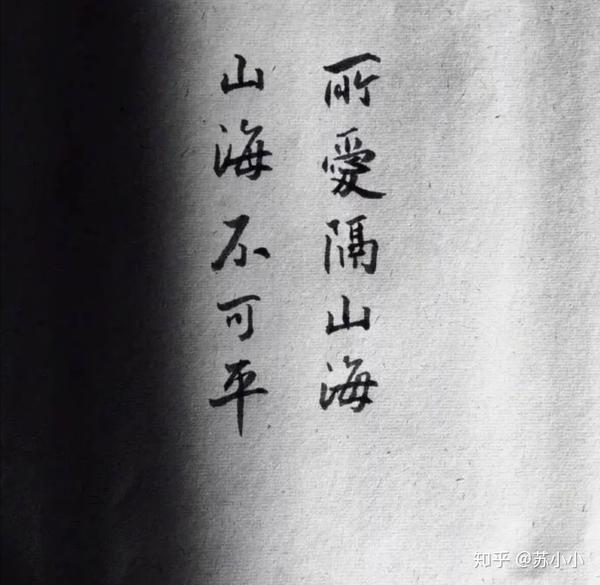 所愛隔山海
山海不可平
知乎 @苏小小